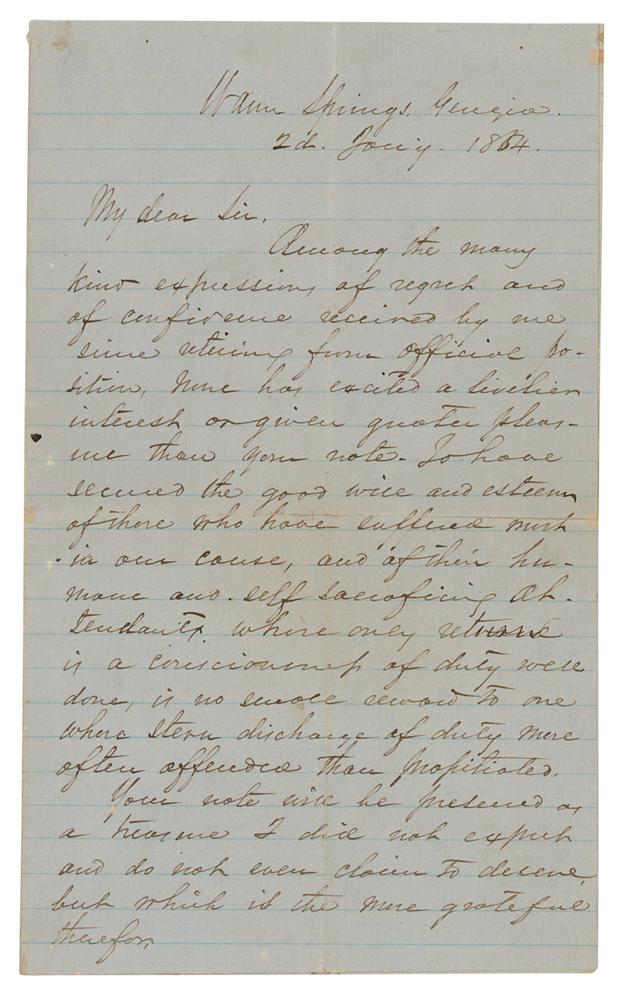 Warm Springs. Georgia.
2d. Jan'y. 1864.
My dear Sir,
Among the many
kind expressions of regret and
of confidence received by me
since retiring from official po-
sition, none has excited a livelier
interest or given greater pleas-
ure than your note. To have
secured the good will and esteem
of those who have suffered most
in our cause, and of their hu-
mane and self sacrificing At-
tendants, whose only
is a consciousness of duty well
done, is no small reward to one
whose stern discharge of duty more
often offended than propitiated.
Your note will be preserved as
a treasure I did not expect
and do not even claim to deserve,
but which is the more grateful
therefor.